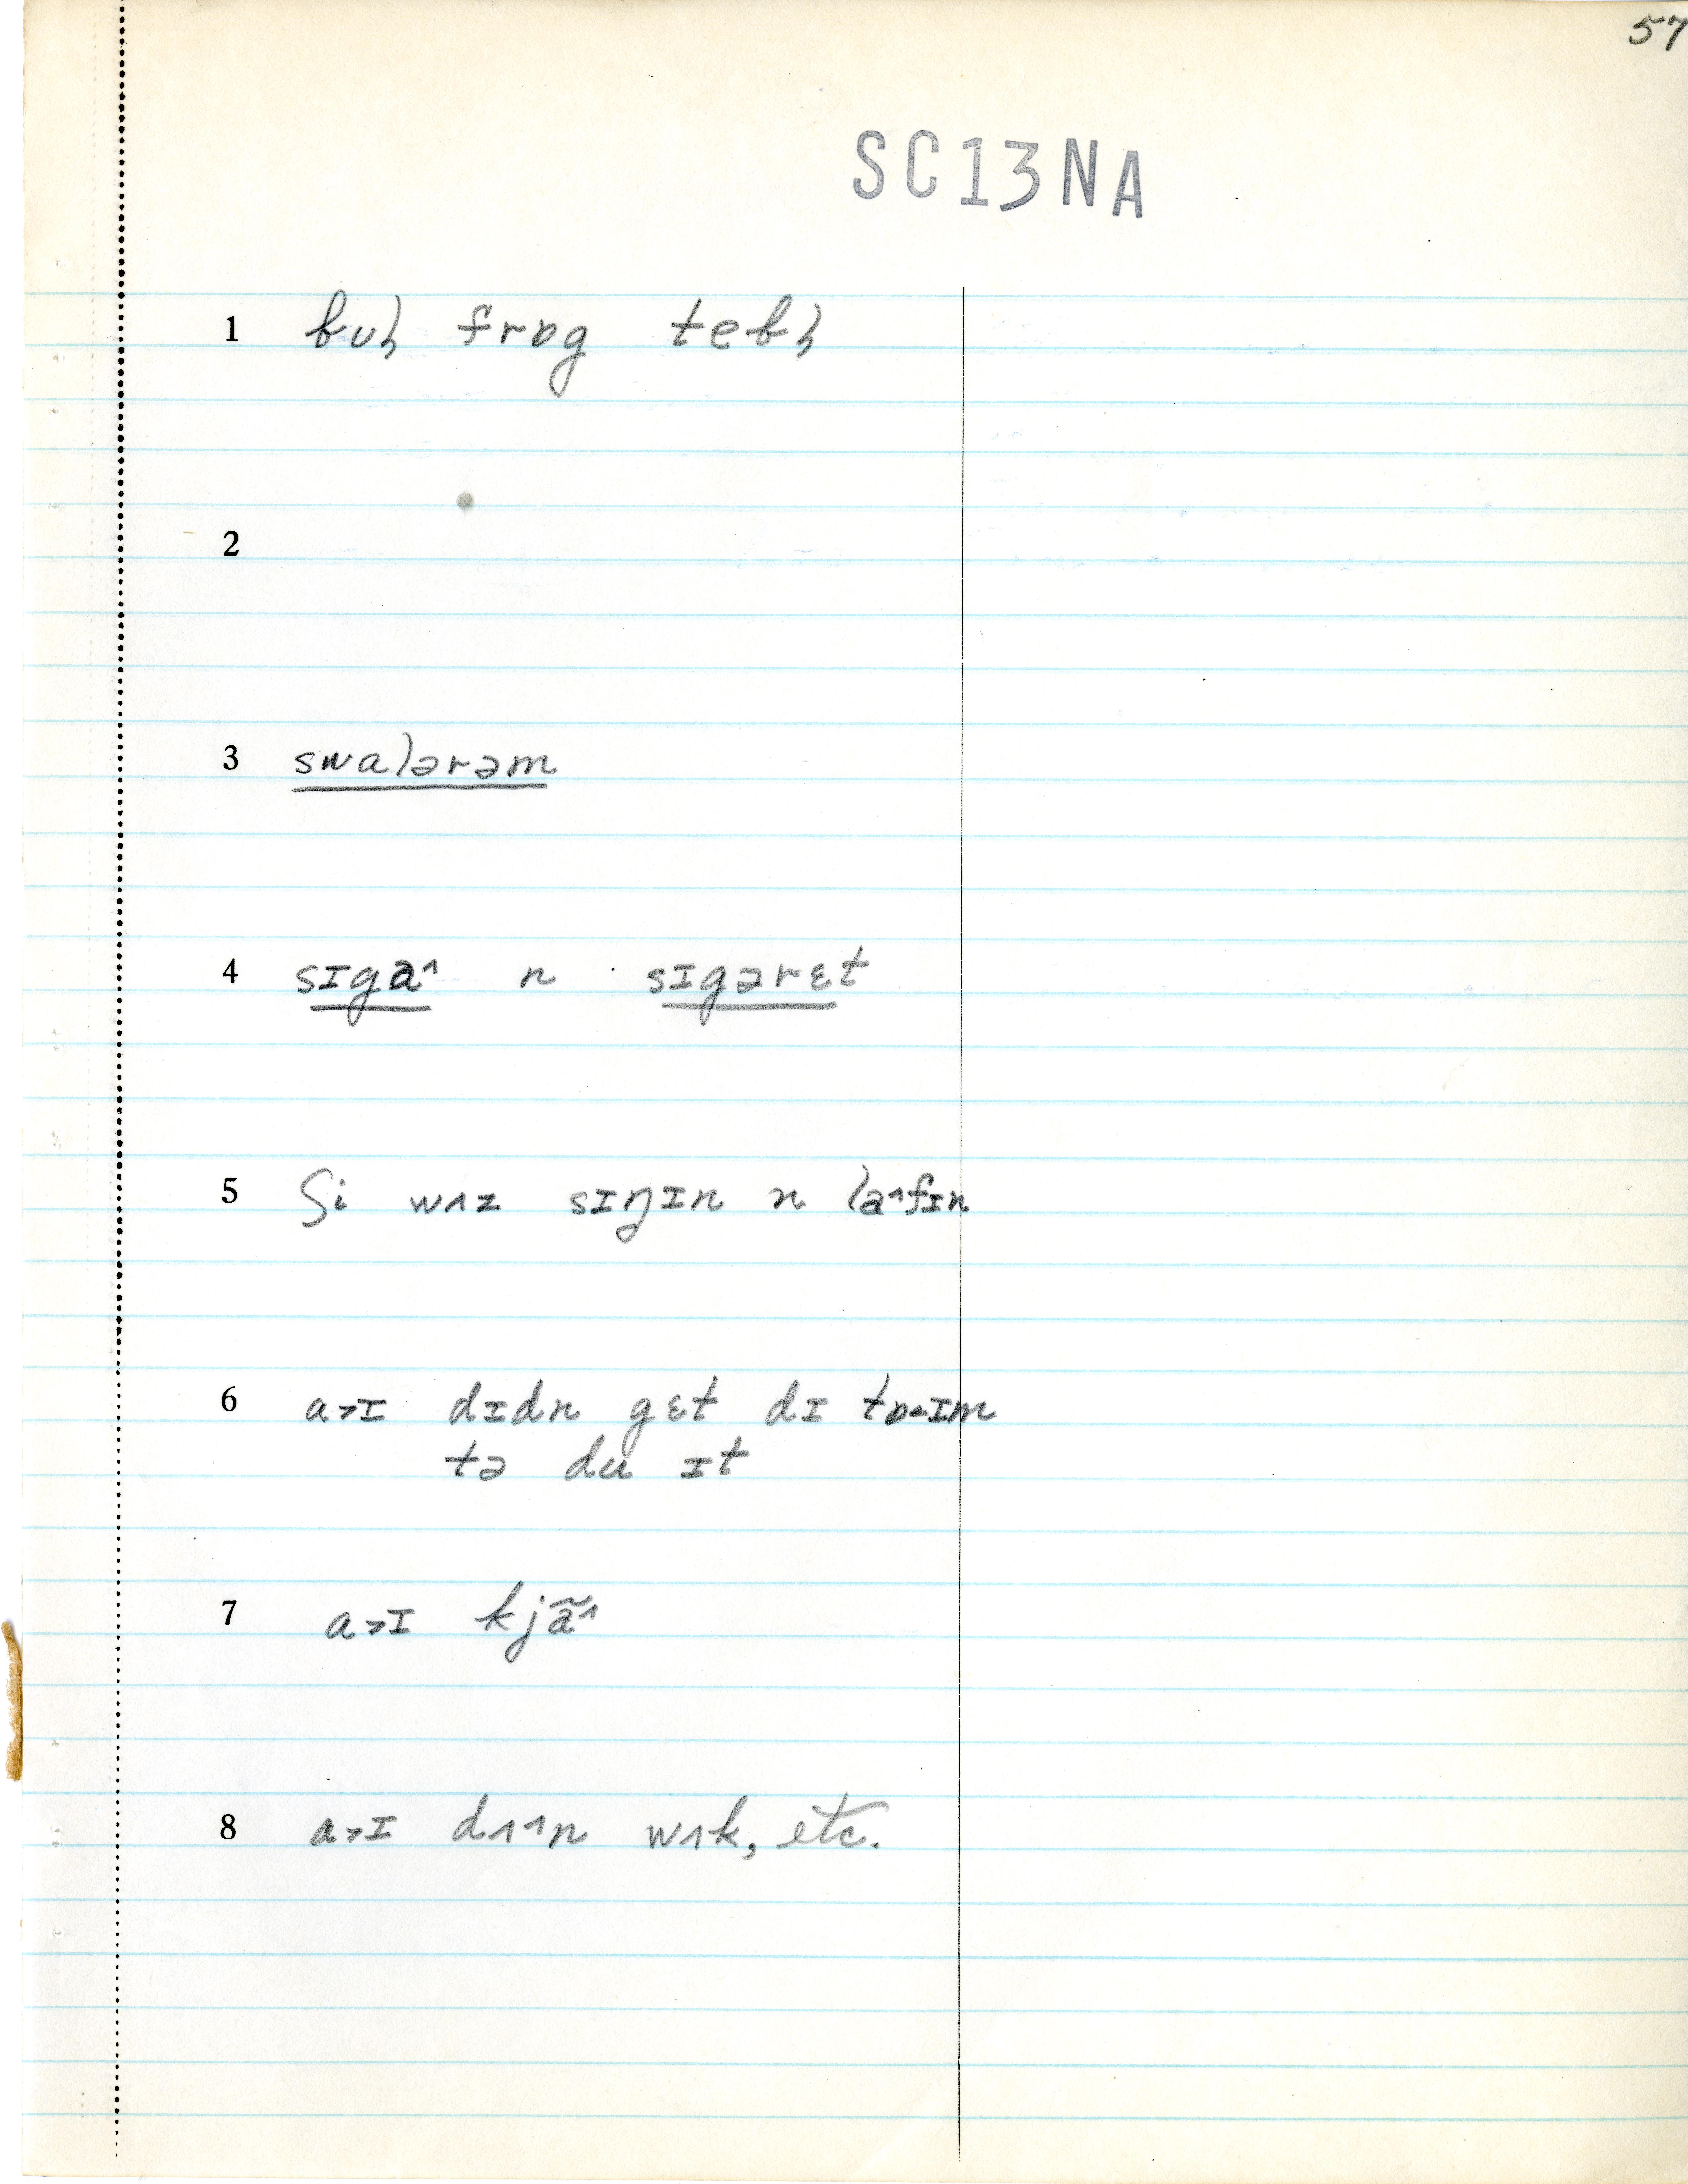 57
SC13NA
1 bʊl frɒg tebl
2
3 swaləram
4 sɪga^ n sɪgərɛt
5 ʃi wʌz sɪŋɪn n la^fɪn
6 a>ɪ dɪdn gɛt dɪ tɒ<ɪm
tə du ɪt
7 a>ɪ kjã^
8 a>ɪ dʌ^n wʌk, etc.